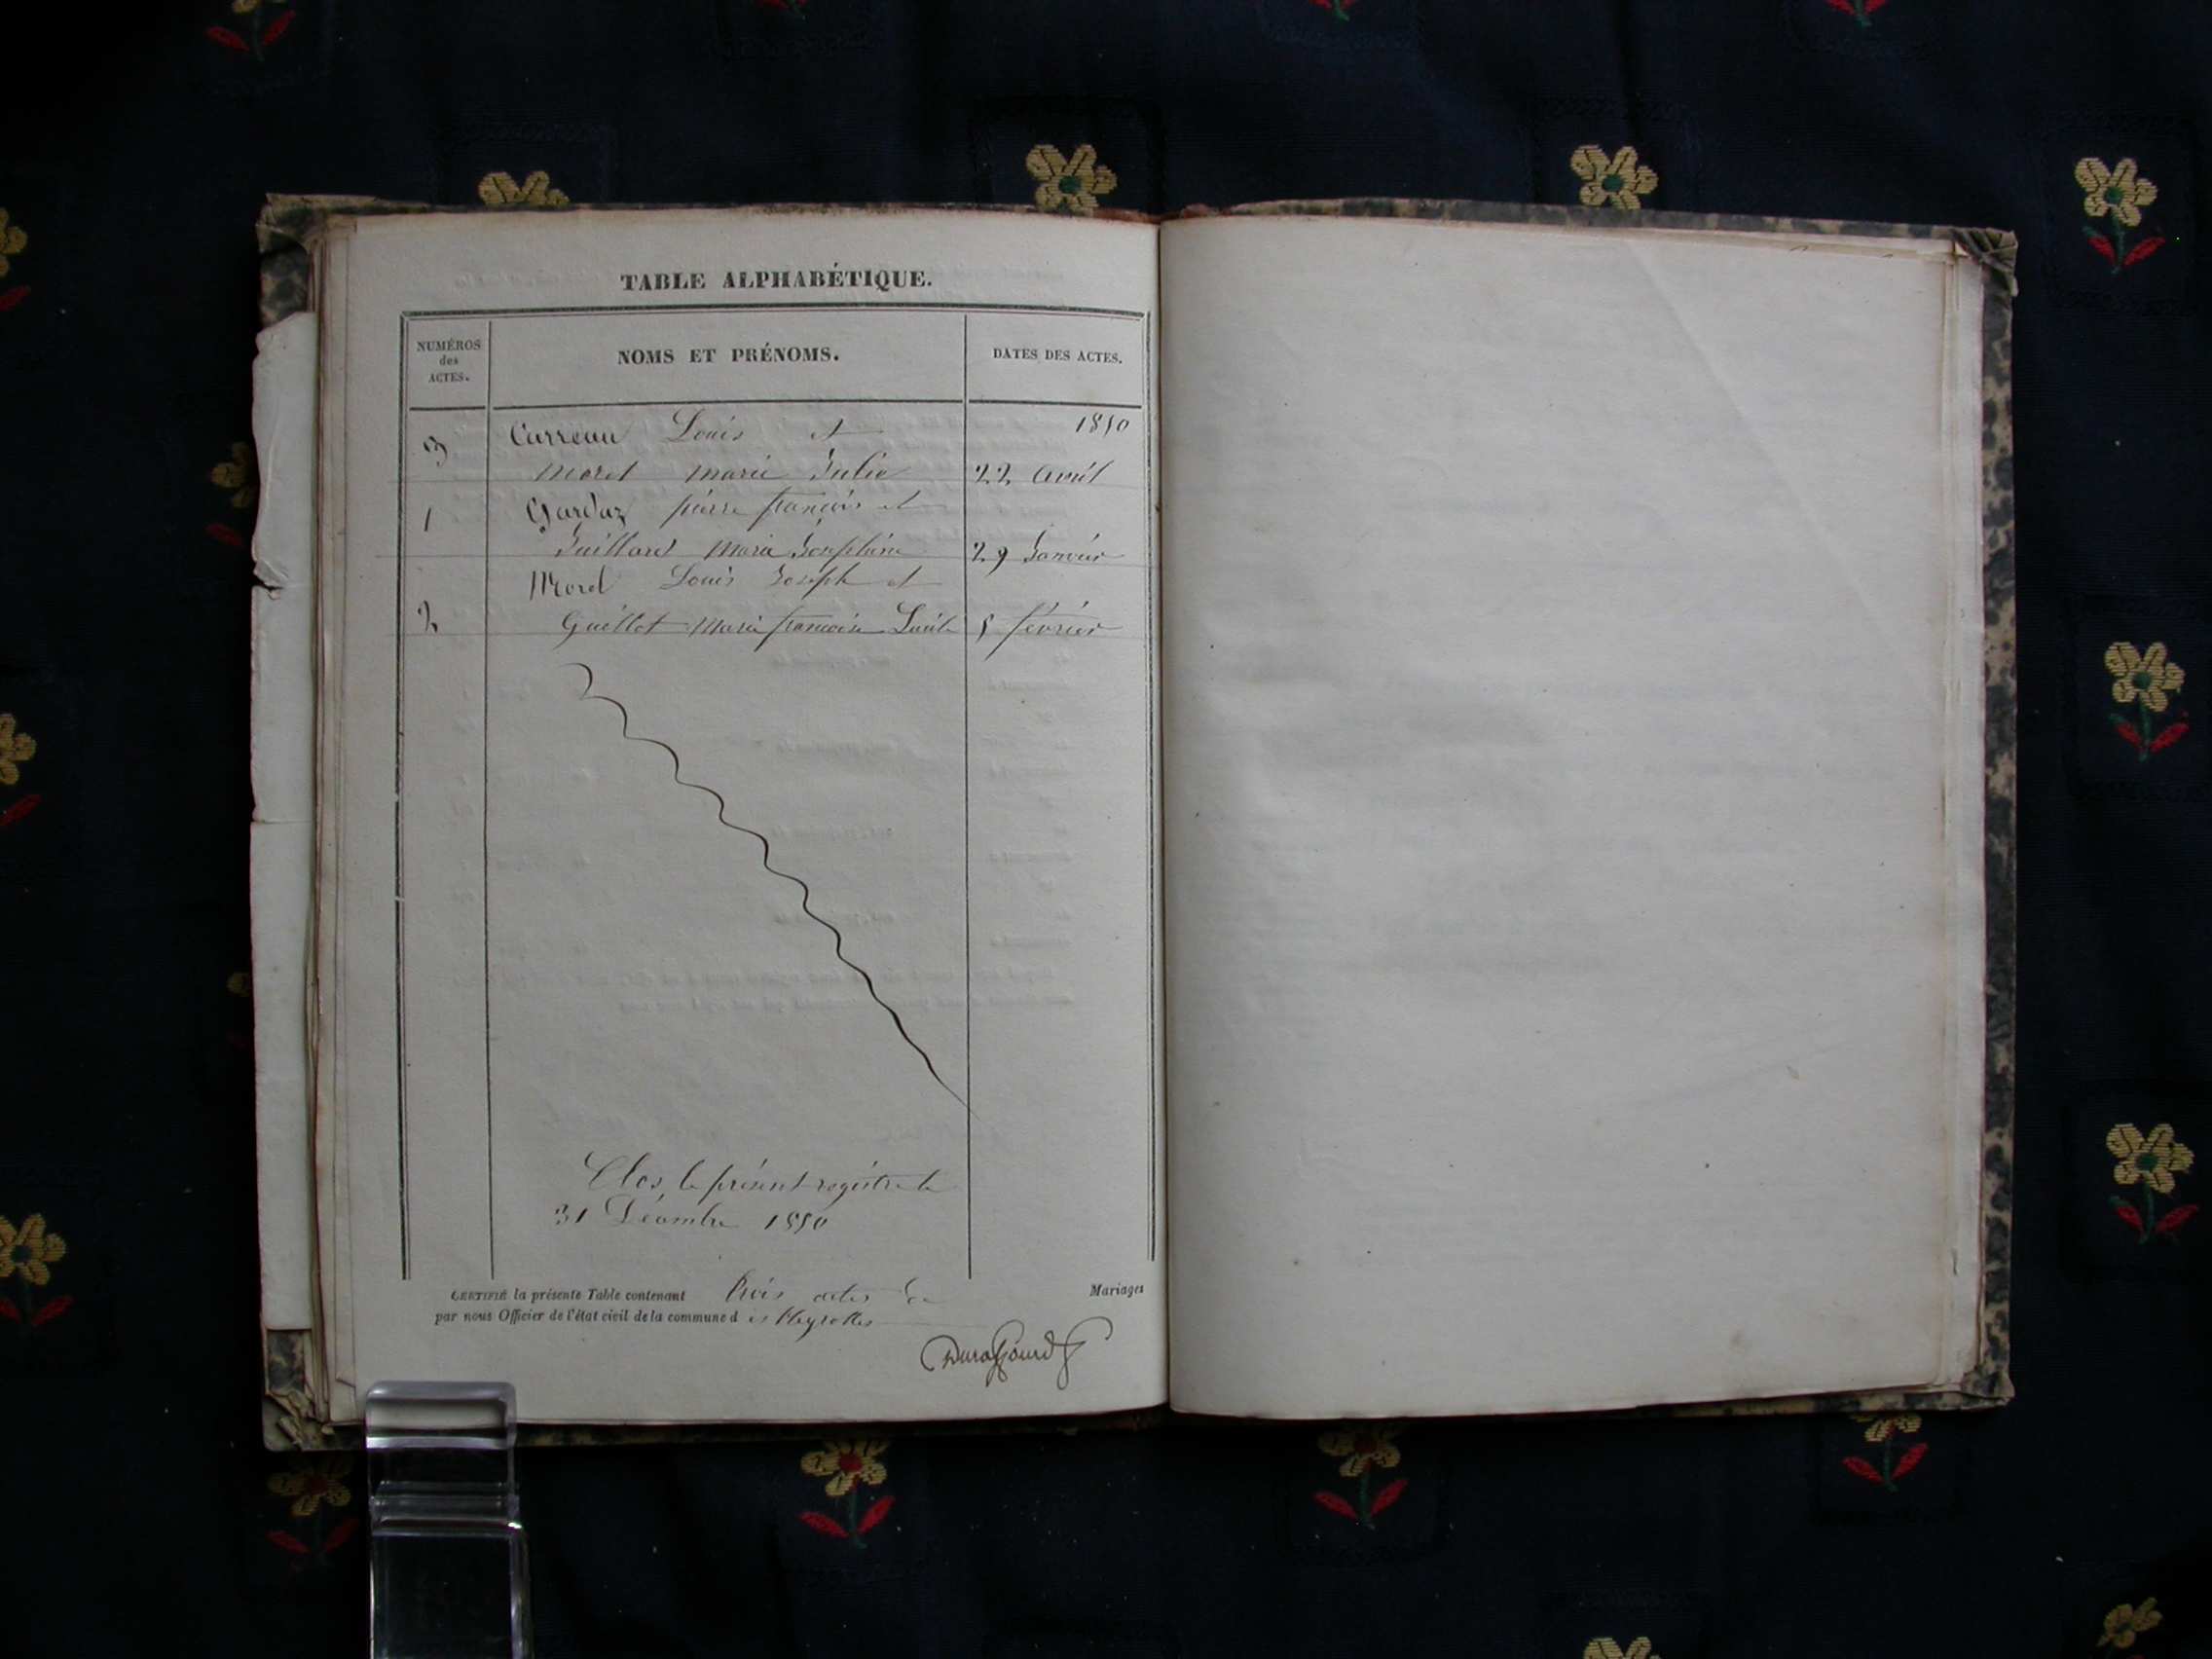 TABLE ALPHABÉTIQUE.
NUMÉROS
des
ACTES.
NOMS ET PRÉNOMS.
DATES DES ACTES.
1850
3 Carreau Louis et
Morel marie Julie 22 avril
1 Gardaz pierre françois et
Guillard Marie Joséphine 29 Janvier
Morel Louis Joseph et
2 Guillot Marie françoise Lucile 5 février
Clos le présent registre le
31 Décembre 1850
CERTIFIÉ la présente Table contenant trois actes de Mariages
par nous Officier de l'état civil de la commune d es Neyrolles